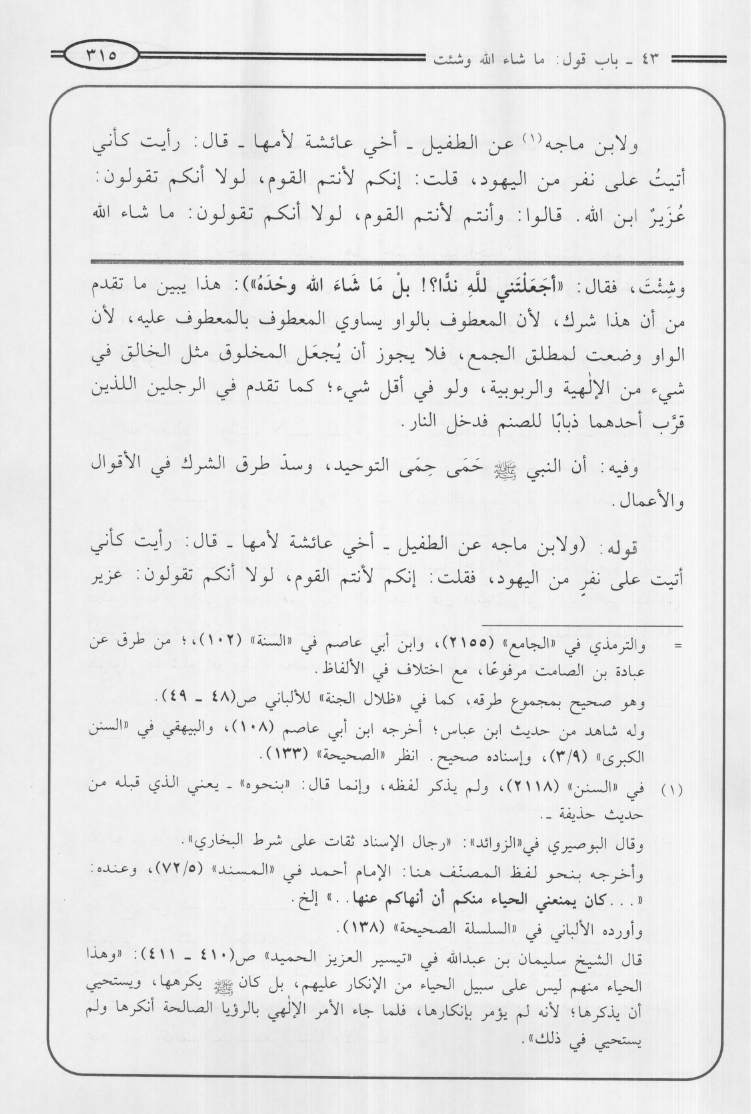 ٤٣ ـ باب قول: ما شاء الله وشئت
٣١٥
ولابن ماجه(١) عن الطفيل ـ أخي عائشة لأمها ـ قال: رأيت كأني
أتيتُ على نفر من اليهود، قلت: إنكم لأنتم القوم، لولا أنكم تقولون:
عُزَيرٌ ابن الله. قالوا: وأنتم لأنتم القوم، لولا أنكم تقولون: ما شاء الله
وشِئْتَ، فقال: «أجَعَلْتَني للَّهِ ندًّا؟! بلْ مَا شَاءَ الله وحْدَهُ»): هذا يبين ما تقدم
من أن هذا شرك، لأن المعطوف بالواو يساوي المعطوف بالمعطوف عليه، لأن
الواو وضعت لمطلق الجمع، فلا يجوز أن يُجعَل المخلوق مثل الخالق في
شيء من الإلٰهية والربوبية، ولو في أقل شيء؛ كما تقدم في الرجلين اللذين
قرَّب أحدهما ذبابًا للصنم فدخل النار.
وفيه: أن النبي ﷺ حَمَى حِمَى التوحيد، وسدّ طرق الشرك في الأقوال
والأعمال.
قوله: (ولابن ماجه عن الطفيل ـ أخي عائشة لأمها ـ قال: رأيت كأني
أتيت على نفرٍ من اليهود، فقلت: إنكم لأنتم القوم، لولا أنكم تقولون: عزير
= والترمذي في «الجامع» (٢١٥٥)، وابن أبي عاصم في «السنة» (١٠٢)،؛ من طرق عن
عبادة بن الصامت مرفوعًا، مع اختلاف في الألفاظ.
وهو صحيح بمجموع طرقه، كما في «ظلال الجنة» للألباني ص(٤٨ ـ ٤٩).
وله شاهد من حديث ابن عباس؛ أخرجه ابن أبي عاصم (١٠٨)، والبيهقي في «السنن
الكبرى» (٣/٩)، وإسناده صحيح. انظر «الصحيحة» (١٣٣).
(١) في «السنن» (٢١١٨)، ولم يذكر لفظه، وإنما قال: «بنحوه» ـ يعني الذي قبله من
حديث حذيفة ـ.
وقال البوصيري في«الزوائد»: «رجال الإسناد ثقات على شرط البخاري».
وأخرجه بنحو لفظ المصنّف هنا: الإمام أحمد في «المسند» (٧٢/٥)، وعنده:
«...كان يمنعني الحياء منكم أن أنهاكم عنها..» إلخ.
وأورده الألباني في «السلسلة الصحيحة» (١٣٨).
قال الشيخ سليمان بن عبدالله في «تيسير العزيز الحميد» ص(٤١٠ ـ ٤١١): «وهذا
الحياء منهم ليس على سبيل الحياء من الإنكار عليهم، بل كان ﷺ يكرهها، ويستحيي
أن يذكرها؛ لأنه لم يؤمر بإنكارها، فلما جاء الأمر الإلٰهي بالرؤيا الصالحة أنكرها ولم
يستحيي في ذلك».